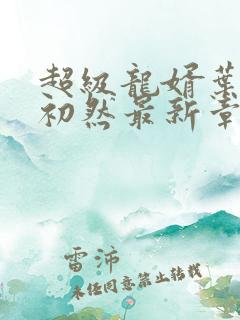 超級龍婿葉
初然最新章
雷沛
未经同意禁止转载